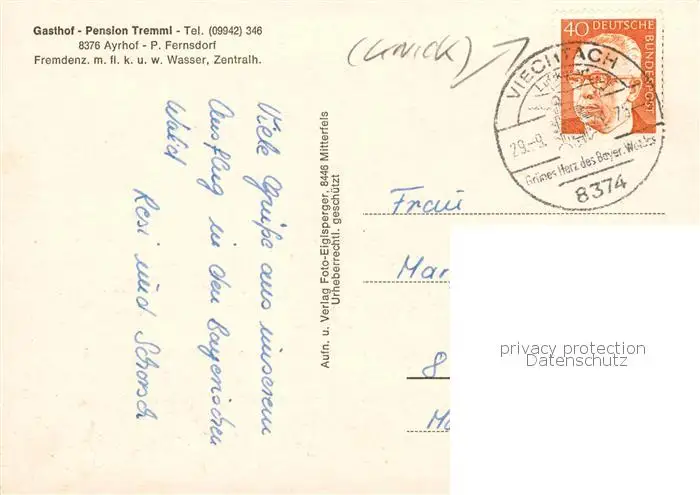 Gasthof - Pension Tremml - Tel. (09942) 346
8376 Ayrhof - P. Fernsdorf
Fremdenz. m. fl. k. u. w. Wasser, Zentralh.
(KNICK)
40 DEUTSCHE BUNDESPOST
VIECHTACH
29.-9.
Grünes Herz des Bayer. Waldes
8374
Viele Grüße aus unserem
Ausflug in den Bayerischen
Wald
Resi und Schorsch
Aufn. u. Verlag Foto-Eiglsperger, 8446 Mitterfels
Urheberrechtl. geschützt
Frau
Mar
8
privacy protection
Datenschutz